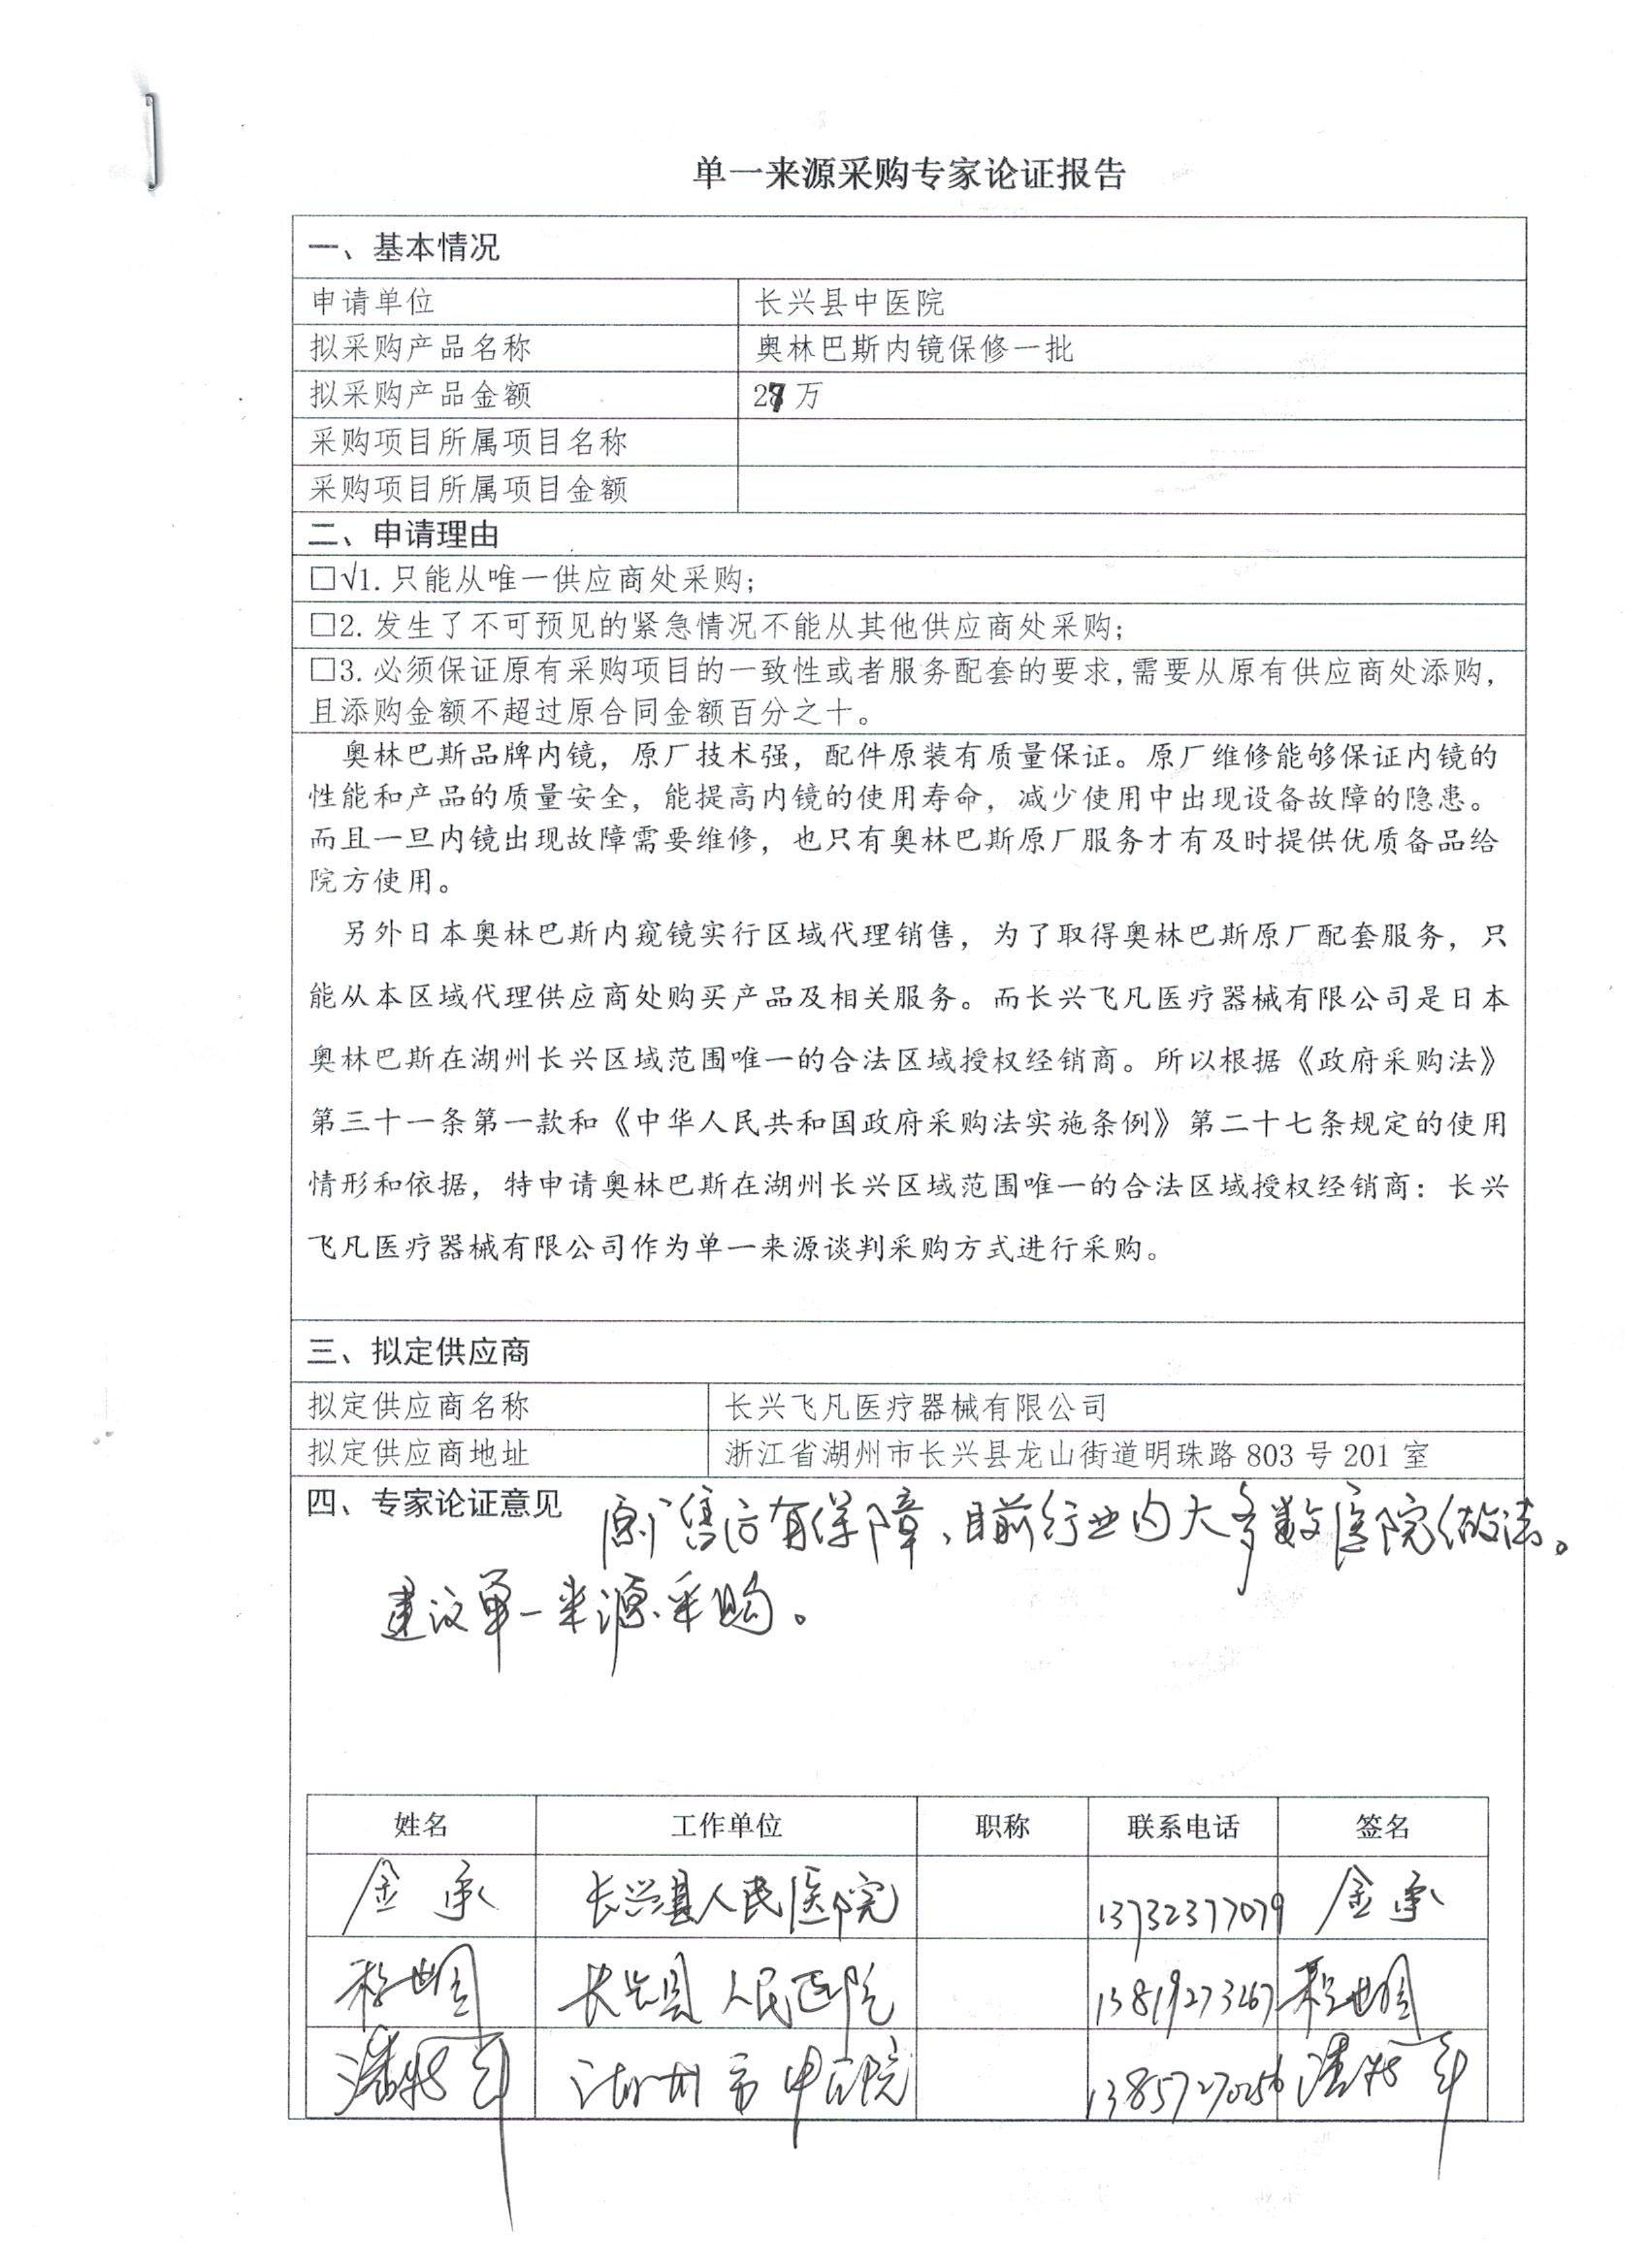 单一来源采购专家论证报告
一、基本情况
申请单位 长兴县中医院
拟采购产品名称 奥林巴斯内镜保修一批
拟采购产品金额 27万
采购项目所属项目名称
采购项目所属项目金额
二、申请理由
□√1.只能从唯一供应商处采购;
□2.发生了不可预见的紧急情况不能从其他供应商处采购;
□3.必须保证原有采购项目的一致性或者服务配套的要求,需要从原有供应商处添购,
且添购金额不超过原合同金额百分之十。
奥林巴斯品牌内镜，原厂技术强，配件原装有质量保证。原厂维修能够保证内镜的
性能和产品的质量安全，能提高内镜的使用寿命，减少使用中出现设备故障的隐患。
而且一旦内镜出现故障需要维修，也只有奥林巴斯原厂服务才有及时提供优质备品给
院方使用。
另外日本奥林巴斯内窥镜实行区域代理销售，为了取得奥林巴斯原厂配套服务，只
能从本区域代理供应商处购买产品及相关服务。而长兴飞凡医疗器械有限公司是日本
奥林巴斯在湖州长兴区域范围唯一的合法区域授权经销商。所以根据《政府采购法》
第三十一条第一款和《中华人民共和国政府采购法实施条例》第二十七条规定的使用
情形和依据，特申请奥林巴斯在湖州长兴区域范围唯一的合法区域授权经销商：长兴
飞凡医疗器械有限公司作为单一来源谈判采购方式进行采购。
三、拟定供应商
拟定供应商名称 长兴飞凡医疗器械有限公司
拟定供应商地址 浙江省湖州市长兴县龙山街道明珠路 803 号 201 室
四、专家论证意见 原厂售后有保障、目前行业内大多数医院做法。
建议单一来源采购。
姓名 工作单位 职称 联系电话 签名
金承 长兴县人民医院 13732377079 金承
长兴县人民医院 13819273267
湖州市中医院 13857270256